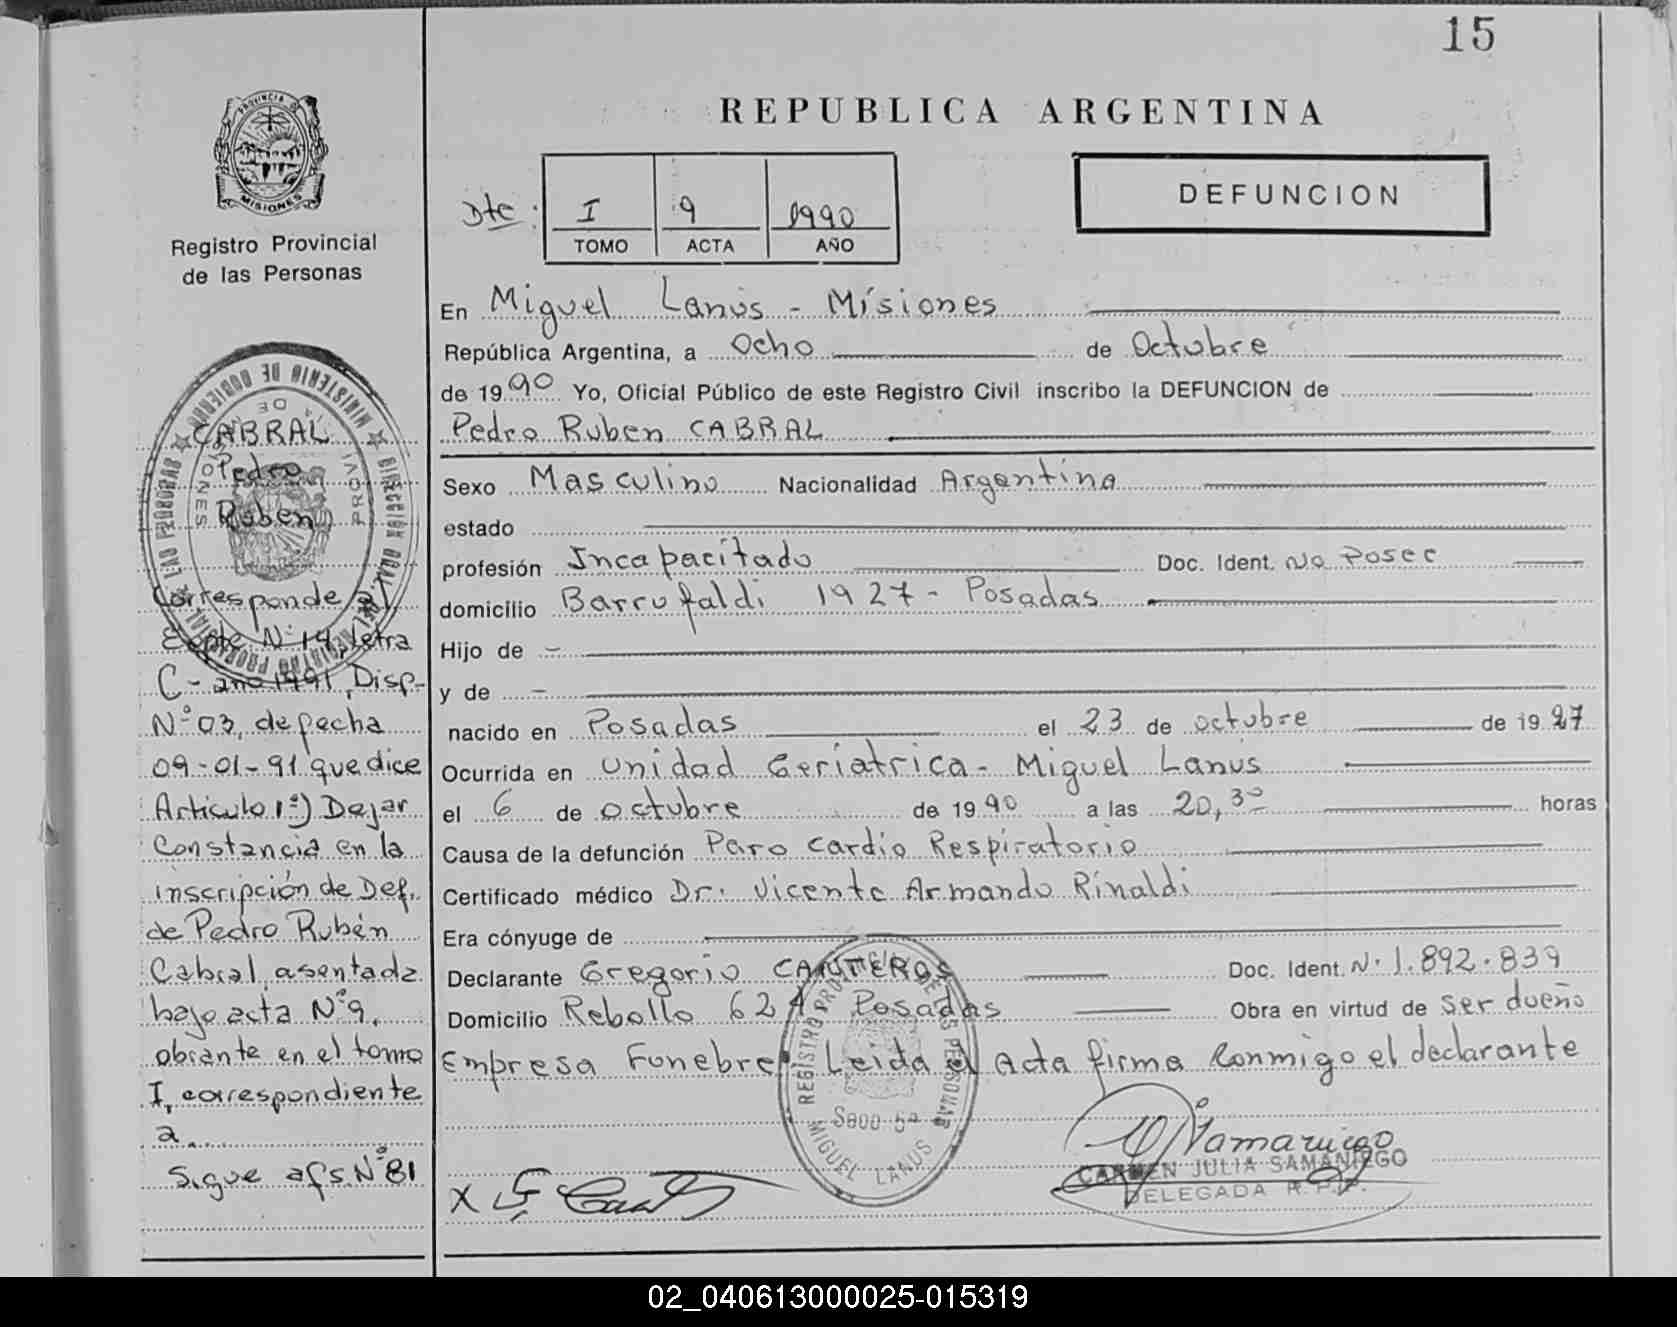 15
PROVINCIA DE
MISIONES
Registro Provincial
de las Personas
REPUBLICA ARGENTINA
DEFUNCION
Dte: I 9 1990
TOMO ACTA AÑO
En Miguel Lanús - Misiones
República Argentina, a Ocho de Octubre
de 1990 Yo, Oficial Público de este Registro Civil inscribo la DEFUNCION de
Pedro Ruben CABRAL
Sexo Masculino Nacionalidad Argentina
estado
profesión Incapacitado Doc. Ident. No Posee
domicilio Barrufaldi 1927 - Posadas
Hijo de -
y de -
nacido en Posadas el 23 de octubre de 1927
Ocurrida en Unidad Geriatrica - Miguel Lanús
el 6 de octubre de 1990 a las 20,30 horas
Causa de la defunción Paro Cardio Respiratorio
Certificado médico Dr: Vicente Armando Rinaldi
Era cónyuge de
Declarante Gregorio CANTEROS Doc. Ident. N° 1.892.839
Domicilio Rebollo 62 Posadas Obra en virtud de ser dueño
Empresa Funebre Leida el Acta firma Conmigo el declarante
REGISTRO PROVINCIAL DE LAS PERSONAS
MIGUEL LANUS
X
CARMEN JULIA SAMANIEGO
DELEGADA R.P.P.
MINISTERIO DE GOBIERNO
DIRECCION GRAL. DEL REGISTRO PROVINCIAL DE LAS PERSONAS
CABRAL
Pedro
Ruben
Corresponde al
Expte N° 14, letra
C - año 1991, Disp-
N° 03, de fecha
09-01-91 que dice
Articulo 1°) Dejar
Constancia en la
inscripción de Def.
de Pedro Rubén
Cabral, asentada
bajo acta N° 9,
obrante en el tomo
I, correspondiente
a...
Sigue a fs. N° 81
02_040613000025-015319